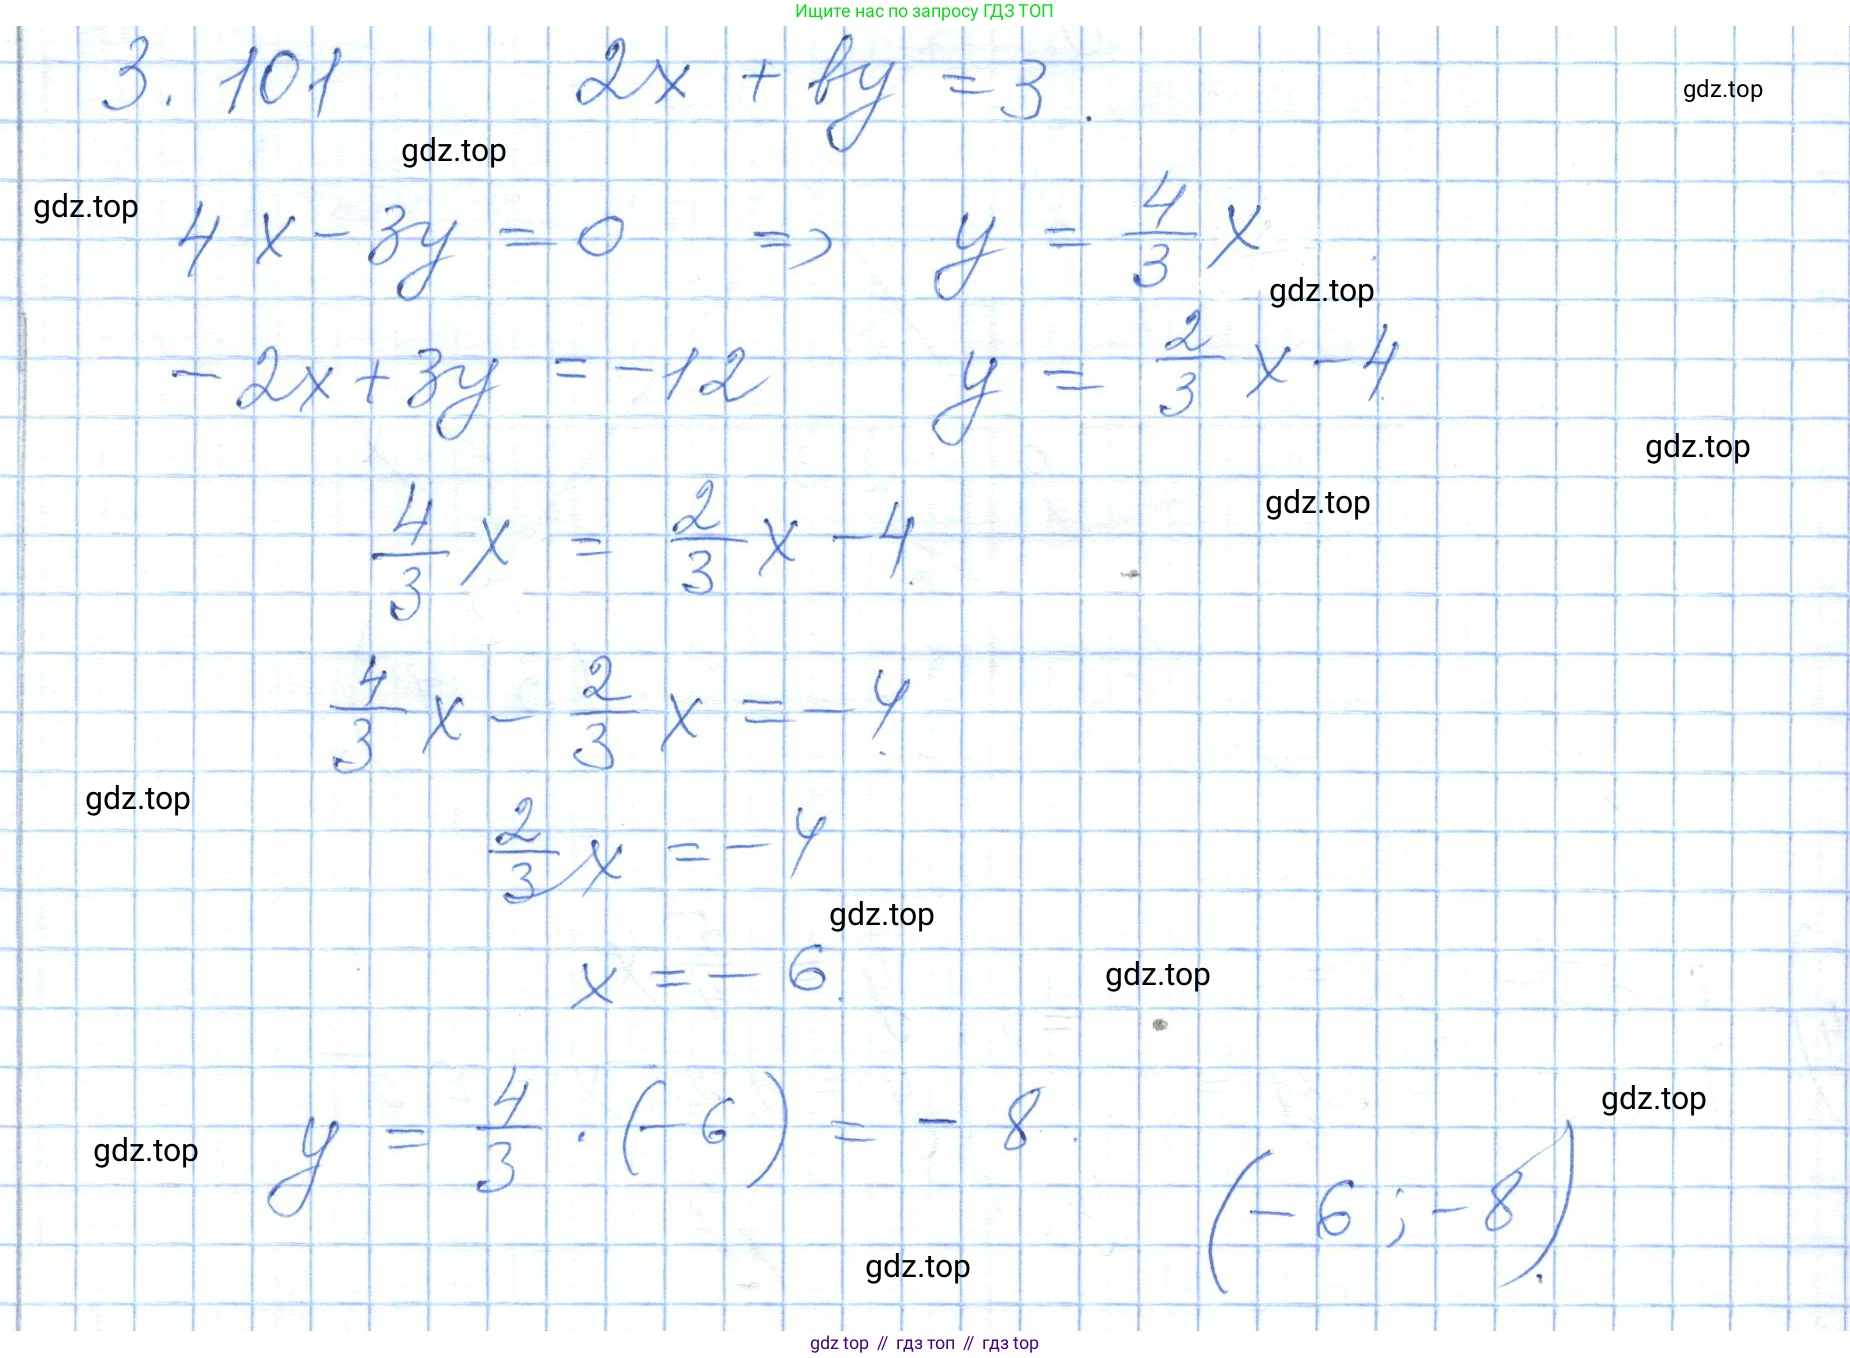 Ищите нас по запросу ГДЗ ТОП
3. 101 2x + by = 3.
gdz.top
gdz.top
gdz.top
4x - 3y = 0 => y = 4/3 x
gdz.top
-2x + 3y = -12 y = 2/3 x - 4
gdz.top
gdz.top
4/3 x = 2/3 x - 4.
4/3 x - 2/3 x = -4.
gdz.top
2/3 x = -4
gdz.top
x = -6.
gdz.top
y = 4/3 · (-6) = -8.
gdz.top
gdz.top
(-6; -8).
gdz.top
gdz top // гдз топ // гдз top